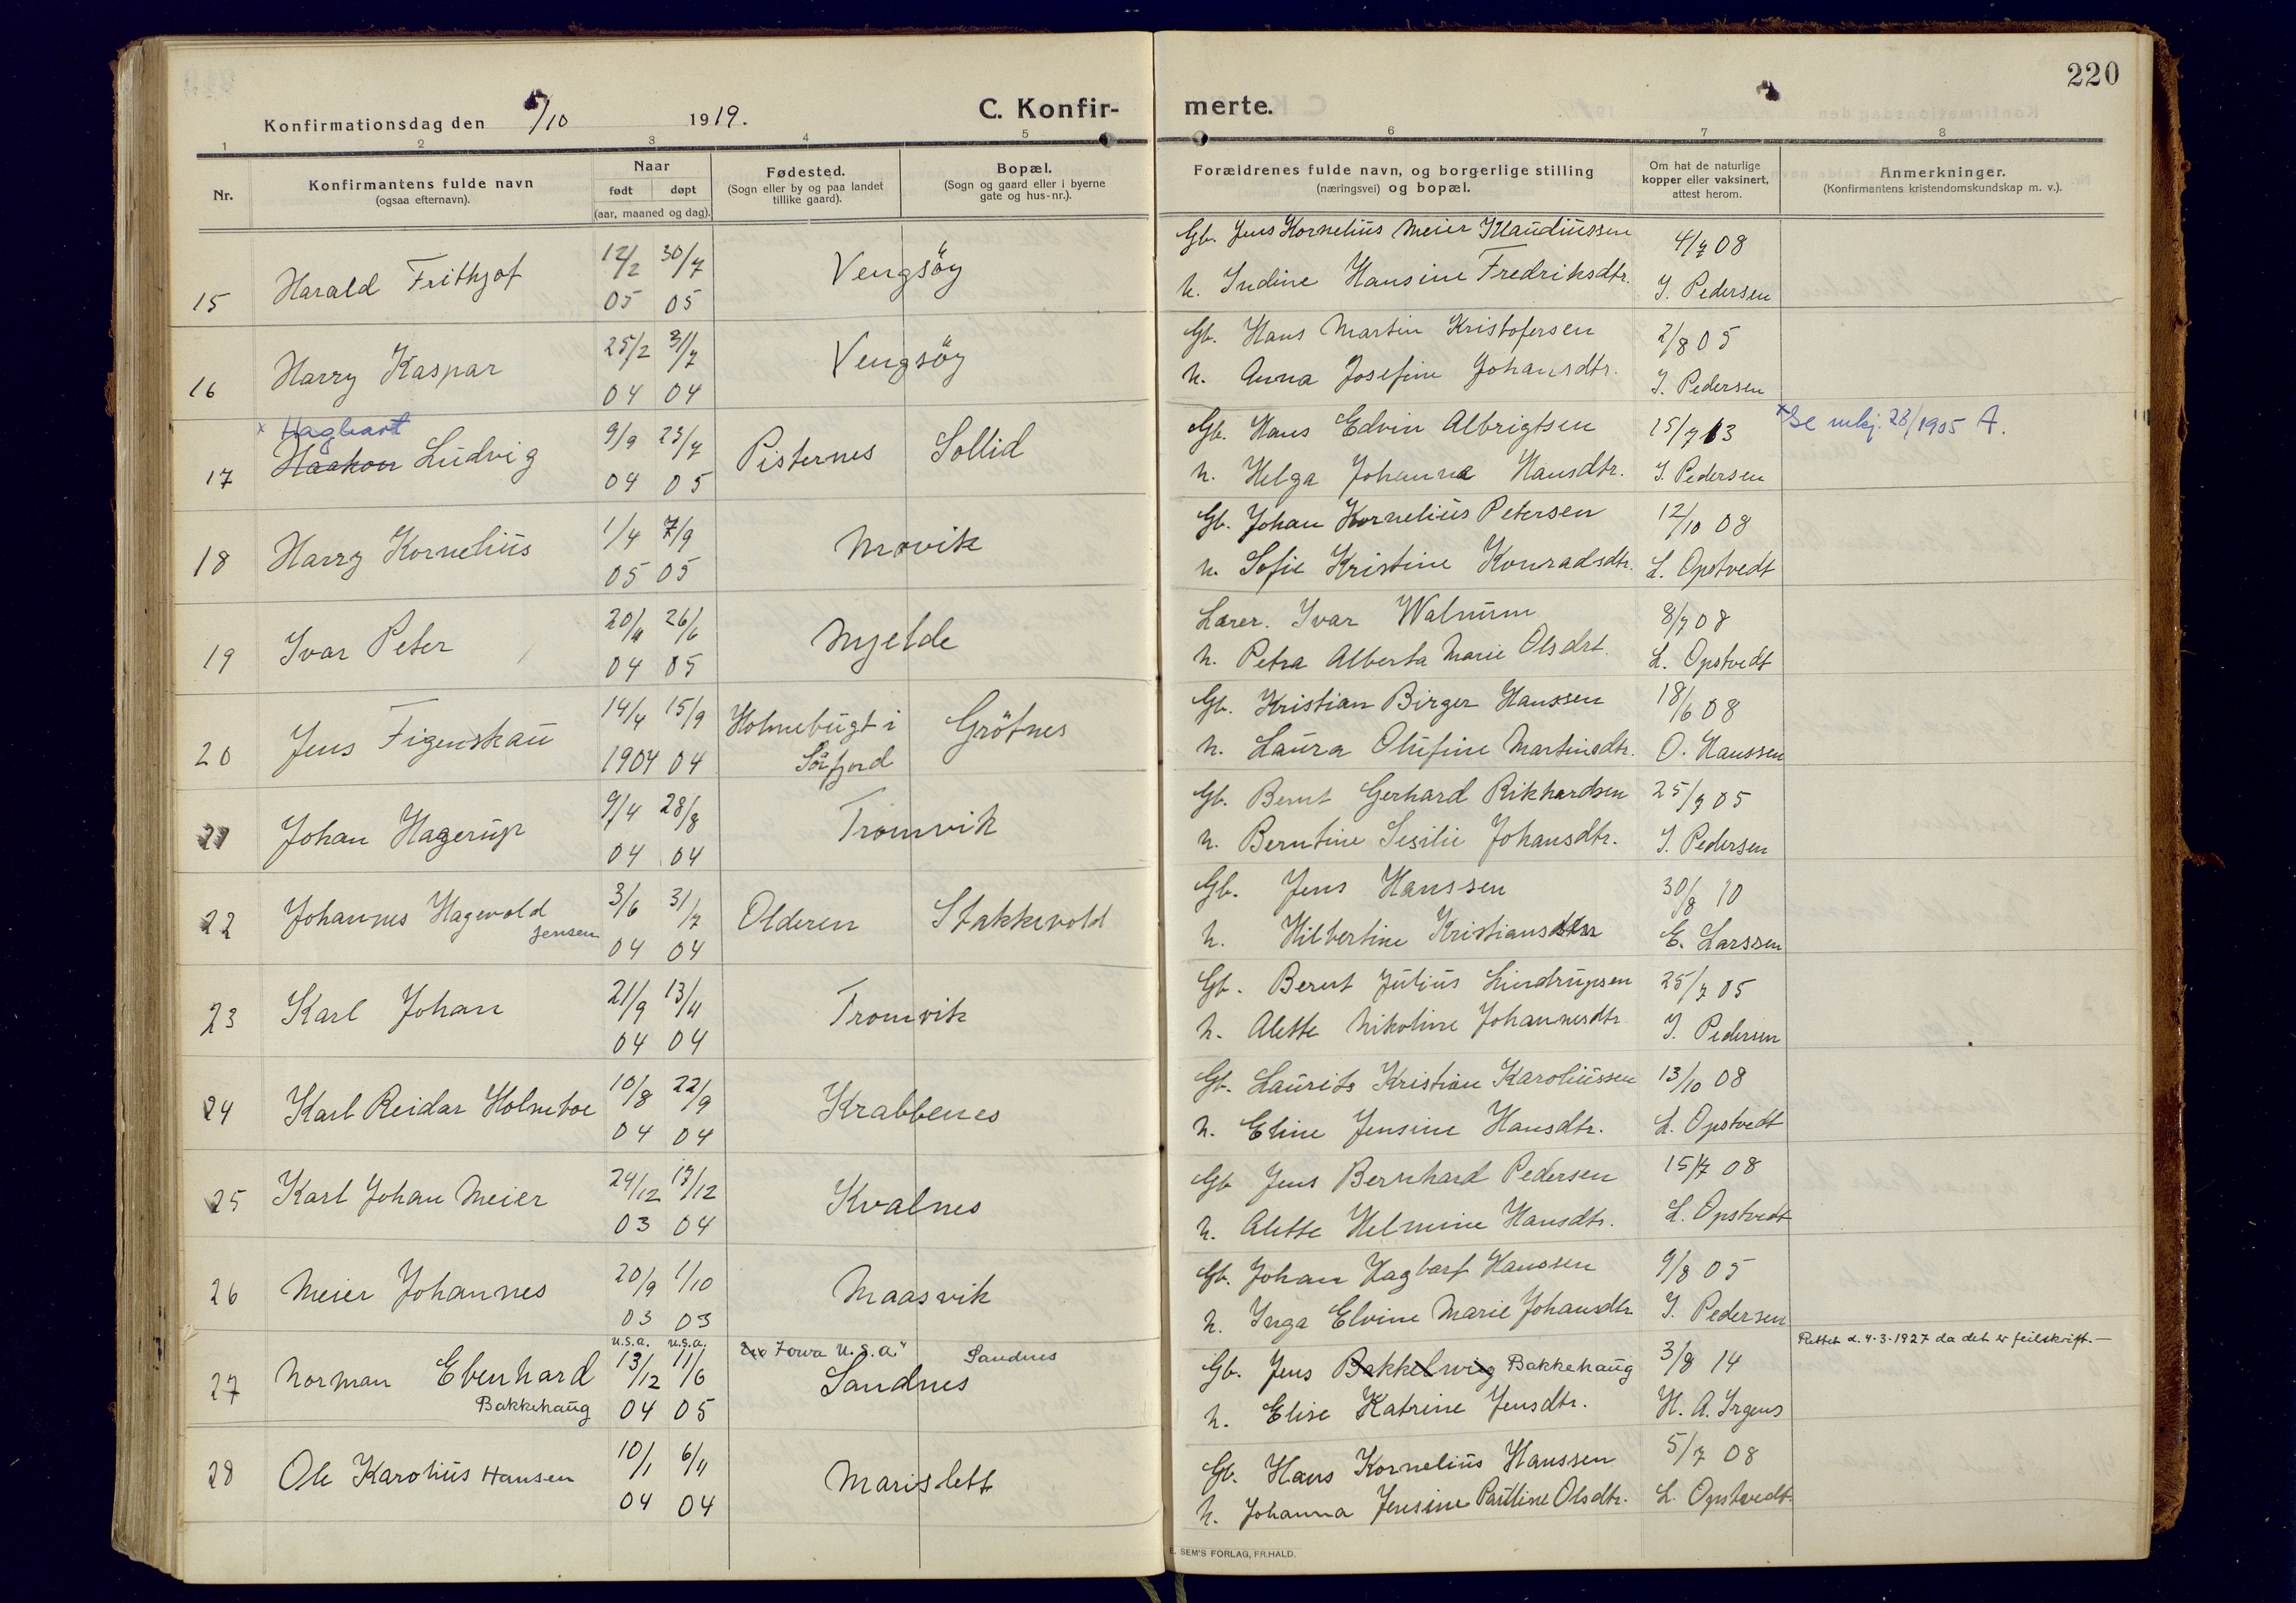 220
Konfirmationsdag den 5/10 1919. C. Konfirmerte.
1 2 3 4 5 6 7 8
Nr.
Konfirmantens fulde navn
(ogsaa efternavn).
Naar
født døpt
(aar, maaned og dag).
Fødested.
(Sogn eller by og paa landet
tillike gaard).
Bopæl.
(Sogn og gaard eller i byerne
gate og hus-nr.).
Forældrenes fulde navn, og borgerlige stilling
(næringsvei) og bopæl.
Om hat de naturlige
kopper eller vaksinert,
attest herom.
Anmerkninger.
(Konfirmantens kristendomskundskap m. v.).
15 Harald Frithjof 12/2 30/7 Vengsöy Gb. Jens Kornelius Meier Klaudiussen 4/7 08
05 05 h. Indine Hansine Fredriksdtr. I. Pedersen
16 Harry Kaspar 25/2 31/7 Vengsöy Gb. Hans Martin Kristofersen 2/8 05
04 04 h. Anna Josefine Johansdtr. I. Pedersen
x Hagbart
17 Haakon Ludvig 9/9 23/7 Pisternes Sollid Gb. Hans Edvin Albrigtsen 15/7 13 x Se mkj. 23/1905 A.
04 05 h. Helga Johanna Hansdtr. I. Pedersen
18 Harry Kornelius 1/4 7/9 Movik Gb. Johan Kornelius Petersen 12/10 08
05 05 h. Sofie Kristine Konradsdtr. L. Opstvedt
19 Ivar Peter 20/11 26/6 Mjelde Lærer. Ivar Walnum 8/7 08
04 05 h. Petra Alberta Marie Olsdrt. L. Opstvedt
20 Jens Figenskau 14/4 15/9 Holmebugt i Grötnes Gb. Kristian Birger Hanssen 18/6 08
1904 04 Sörfjord h. Laura Olufine Martinsdtr. O. Hanssen
21 Johan Hagerup 9/4 28/8 Tromvik Gb. Bernt Gerhard Rikhardsen 25/7 05
04 04 h. Berntine Sesilie Johansdtr. I. Pedersen
22 Johannes Hagevold 3/6 31/7 Olderen Stakkevold Gb. Jens Hanssen 30/8 10
Jensen 04 04 h. Hilbertine Kristiansdtr E. Larssen
23 Karl Johan 21/9 13/11 Tromvik Gb. Bernt Julius Lindrupsen 25/7 05
04 04 h. Alette Nikoline Johannesdtr I. Pedersen
24 Karl Reidar Holmboe 10/8 22/9 Krabbenes Gb. Laurits Kristian Karoliussen 13/10 08
04 04 h. Eline Jensine Hansdtr. L. Opstvedt
25 Karl Johan Meier 24/12 13/12 Kvalnes Gb Jens Bernhard Pedersen 15/7 08
03 04 h. Alette Helmine Hansdtr. L. Opstvedt
26 Meier Johannes 20/9 1/10 Maasvik Gb. Johan Hagbart Hanssen 9/8 05
03 03 h. Inga Elvine Marie Johansdtr I. Pedersen
u.s.a. u.s.a. Iowa u.s.a. Sandnes Rettet d. 4-3-1927 da det er feilskrift.—
27 Norman Ebenhard 13/12 11/6 Sandnes Gb. Jens Bakkelwig Bakkehaug 3/8 14
Bakkehaug 04 05 h. Elise Katrine Jensdtr. H. A. Irgens
28 Ole Karolius Hansen 10/1 6/11 Marislett Gb. Hans Kornelius Hanssen 5/7 08
04 04 h. Johanna Jensine Pauline Olsdtr. L. Opstvedt
E. SEM'S FORLAG, FR.HALD.